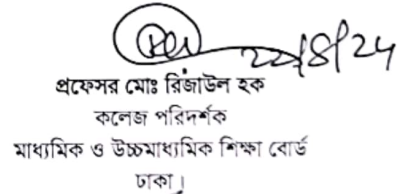 ২২/৪/২৫
প্রফেসর মোঃ রিজাউল হক
কলেজ পরিদর্শক
মাধ্যমিক ও উচ্চমাধ্যমিক শিক্ষা বোর্ড
ঢাকা।